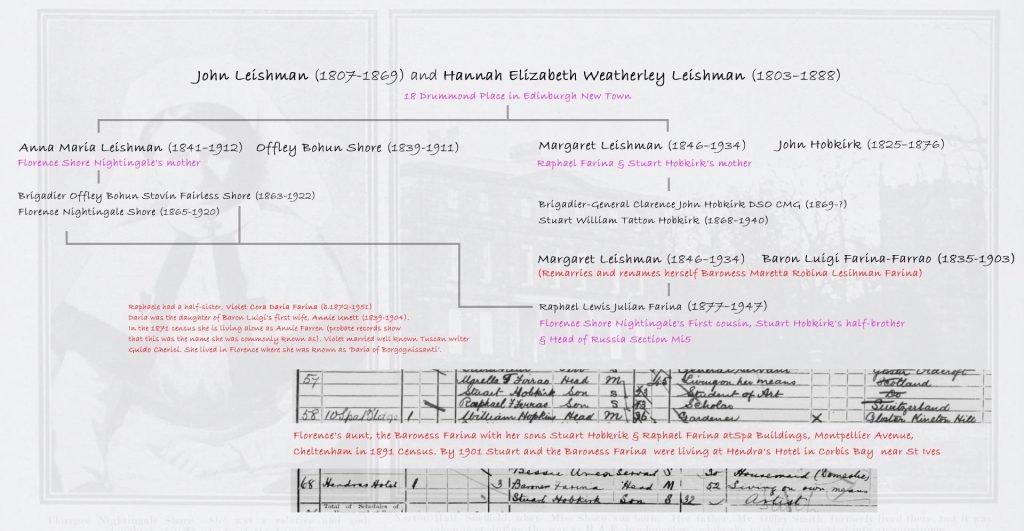 John Leishman (1807-1869) and Hannah Elizabeth Weatherley Leishman (1803-1888)
18 Drummond Place in Edinburgh New Town
Anna Maria Leishman (1841-1912) Offley Bohun Shore (1839-1911)
Florence Shore Nightingale's mother
Margaret Leishman (1846-1934) John Hobkirk (1825-1876)
Raphael Farina & Stuart Hobkirk's mother
Brigadier Offley Bohun Stovin Fairless Shore (1863-1922)
Florence Nightingale Shore (1865-1920)
Brigadier-General Clarence John Hobkirk DSO CMG (1869-?)
Stuart William Tatton Hobkirk (1868-1940)
Margaret Leishman (1846-1934) Baron Luigi Farina-Farrao (1835-1903)
(Remarries and renames herself Baroness Maretta Robina Lesihman Farina)
Raphael Lewis Julian Farina (1877-1947)
Florence Shore Nightingale's First cousin, Stuart Hobkirk's half-brother
& Head of Russia Section Mi5
Raphaele had a half-sister, Violet Cora Daria Farina (b.1872-1951)
Daria was the daughter of Baron Luigi's first wife, Annie Unett (1839-1904).
In the 1871 census she is living alone as Annie Farren (probate records show
that this was the name she was commonly known as). Violet married well known Tuscan writer
Guido Cherici. She lived in Florence where she was known as 'Daria of Borgognissanti'.
General Servant
57 Head M 45 Living on her means Scotland
Stuart Hobkirk Son S Student of Art Do
Raphael Son S 13 Scholar Switzerland
58 10 Spa 1 William Hopkins Head M Gardener X Kineton Hill
Florence's aunt, the Baroness Farina with her sons Stuart Hobkrik & Raphael Farina atSpa Buildings, Montpellier Avenue,
Cheltenham in 1891 Census. By 1901 Stuart and the Baroness Farina were living at Hendra's Hotel in Corbis Bay near St Ives
Bessie Servant S Housemaid (Domestic)
68 Hendras Hotel 1 3 Baroness Farina Head M 52 Living on own means
Stuart Hobkirk Son S 32 Artist
Total of Schedules of